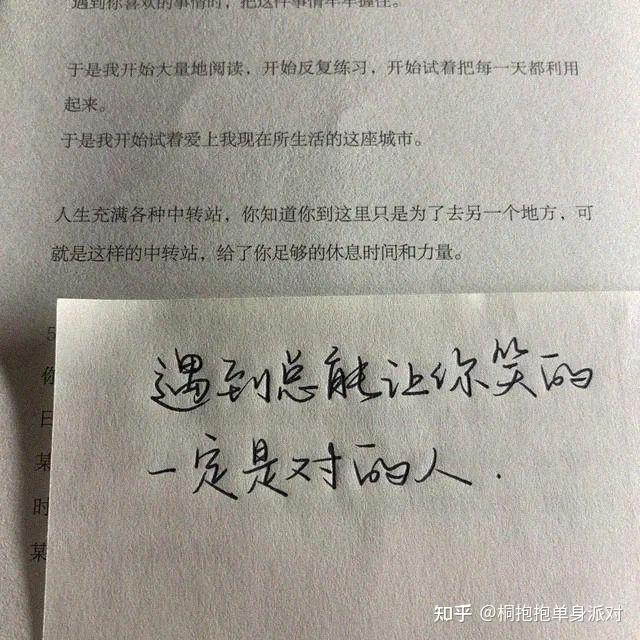 遇到你喜欢的事情时，把这件事情牢牢握住。
于是我开始大量地阅读，开始反复练习，开始试着把每一天都利用
起来。
于是我开始试着爱上我现在所生活的这座城市。
人生充满各种中转站，你知道你到这里只是为了去另一个地方，可
就是这样的中转站，给了你足够的休息时间和力量。
5
你
日
某
时
某
遇到总能让你笑的
一定是对的人.
知乎 @桐抱抱单身派对